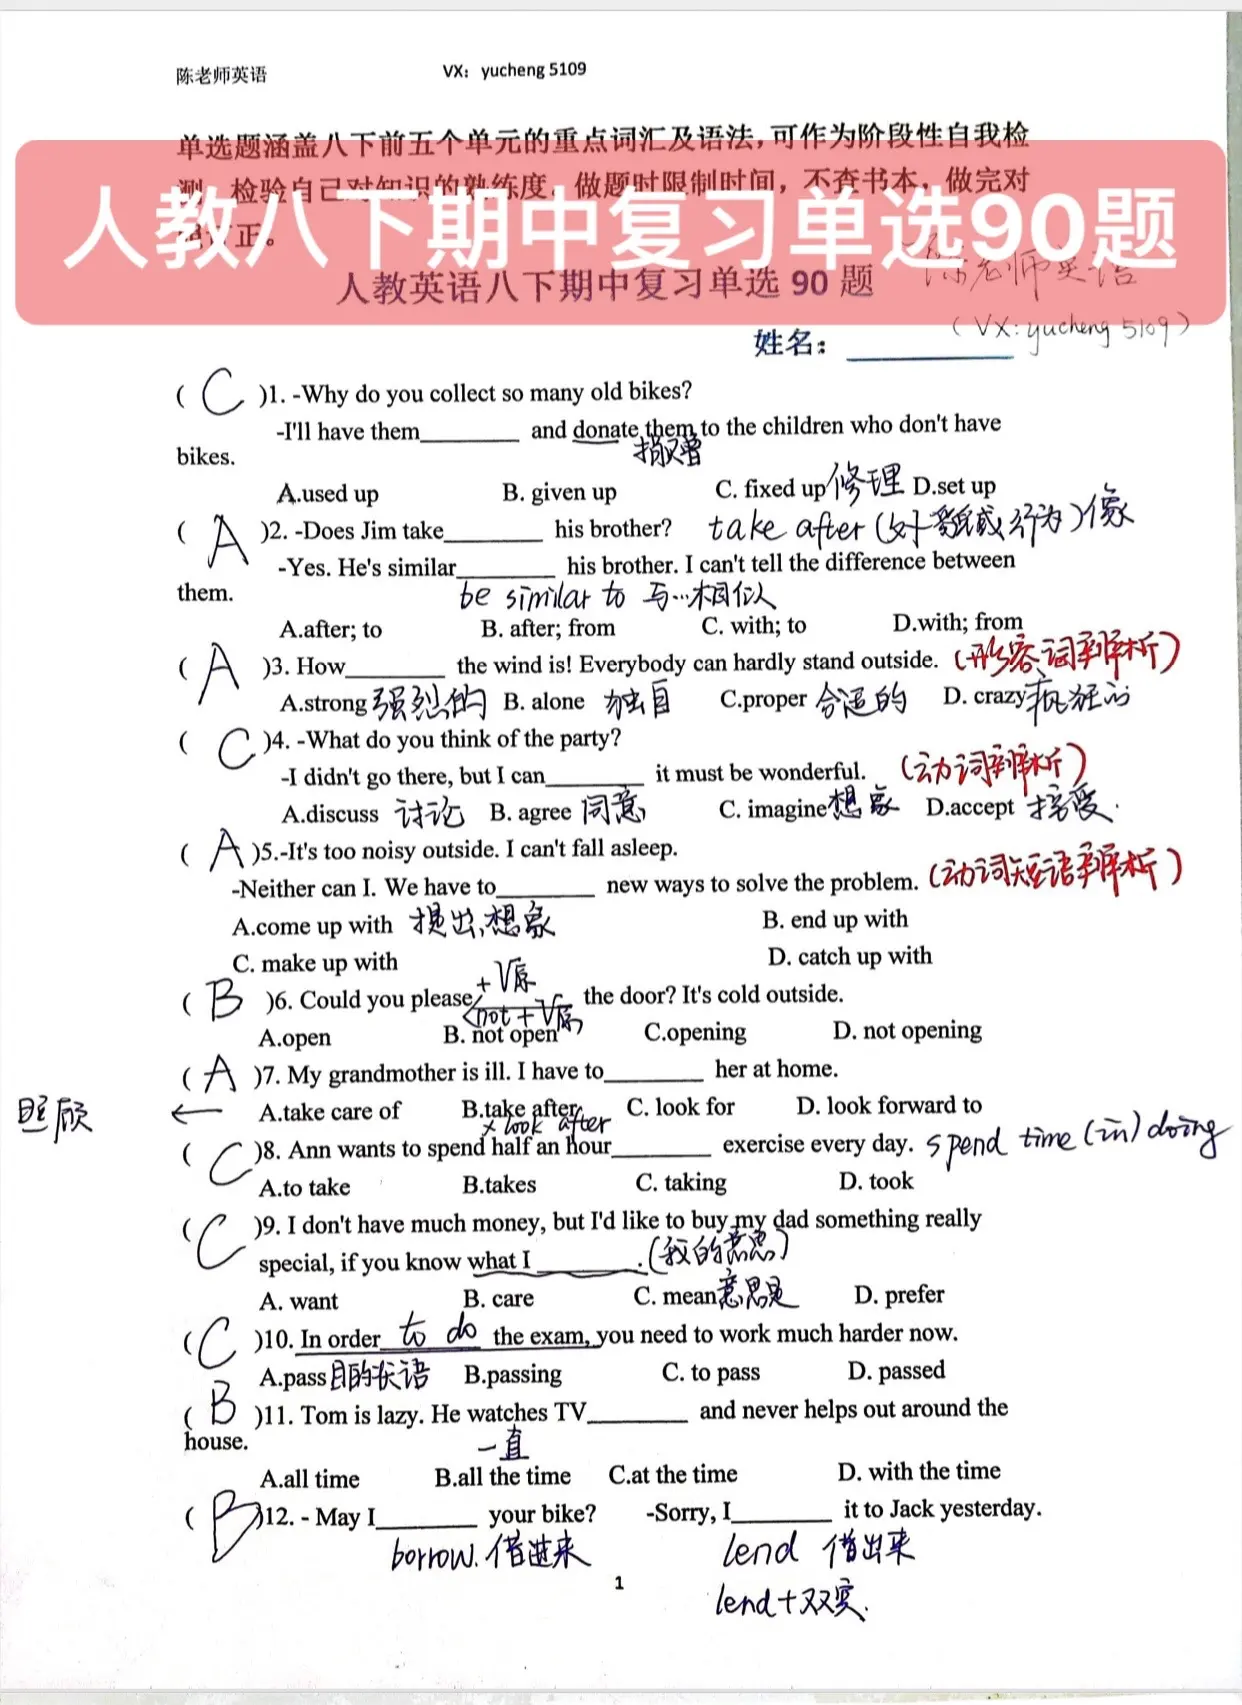 陈老师英语 VX：yucheng 5109
单选题涵盖八下前五个单元的重点词汇及语法，可作为阶段性自我检
测，检验自己对知识的熟练度。做题时限制时间，不查书本，做完对
正。
人教八下期中复习单选90题
人教英语八下期中复习单选 90 题 陈老师英语
姓名： (VX:yucheng 5109)
( C )1. -Why do you collect so many old bikes?
-I'll have them________ and donate them to the children who don't have
捐赠
bikes.
A.used up B. given up C. fixed up 修理 D.set up
( A )2. -Does Jim take________ his brother? take after (外貌或行为) 像
-Yes. He's similar________ his brother. I can't tell the difference between
them. be similar to 与…相似
A.after; to B. after; from C. with; to D.with; from
( A )3. How________ the wind is! Everybody can hardly stand outside. (形容词辨析)
A.strong 强烈的 B. alone 独自 C.proper 合适的 D. crazy 疯狂的
( C )4. -What do you think of the party?
-I didn't go there, but I can________ it must be wonderful. (动词辨析)
A.discuss 讨论 B. agree 同意 C. imagine 想象 D.accept 接受.
( A )5.-It's too noisy outside. I can't fall asleep.
-Neither can I. We have to________ new ways to solve the problem. (动词短语辨析)
A.come up with 提出,想象 B. end up with
C. make up with D. catch up with
+V原
( B )6. Could you please________ the door? It's cold outside.
not+V原
A.open B. not open C.opening D. not opening
( A )7. My grandmother is ill. I have to________ her at home.
照顾 ← A.take care of B.take after C. look for D. look forward to
× look after
( C )8. Ann wants to spend half an hour________ exercise every day. spend time (in) doing
A.to take B.takes C. taking D. took
( C )9. I don't have much money, but I'd like to buy my dad something really
special, if you know what I ________. (我的意思)
A. want B. care C. mean 意思是 D. prefer
( C )10. In order to do the exam, you need to work much harder now.
A.pass 目的状语 B.passing C. to pass D. passed
( B )11. Tom is lazy. He watches TV________ and never helps out around the
house. 一直
A.all time B.all the time C.at the time D. with the time
( B )12. - May I________ your bike? -Sorry, I________ it to Jack yesterday.
borrow. 借进来 lend 借出来
1
lend+双宾.